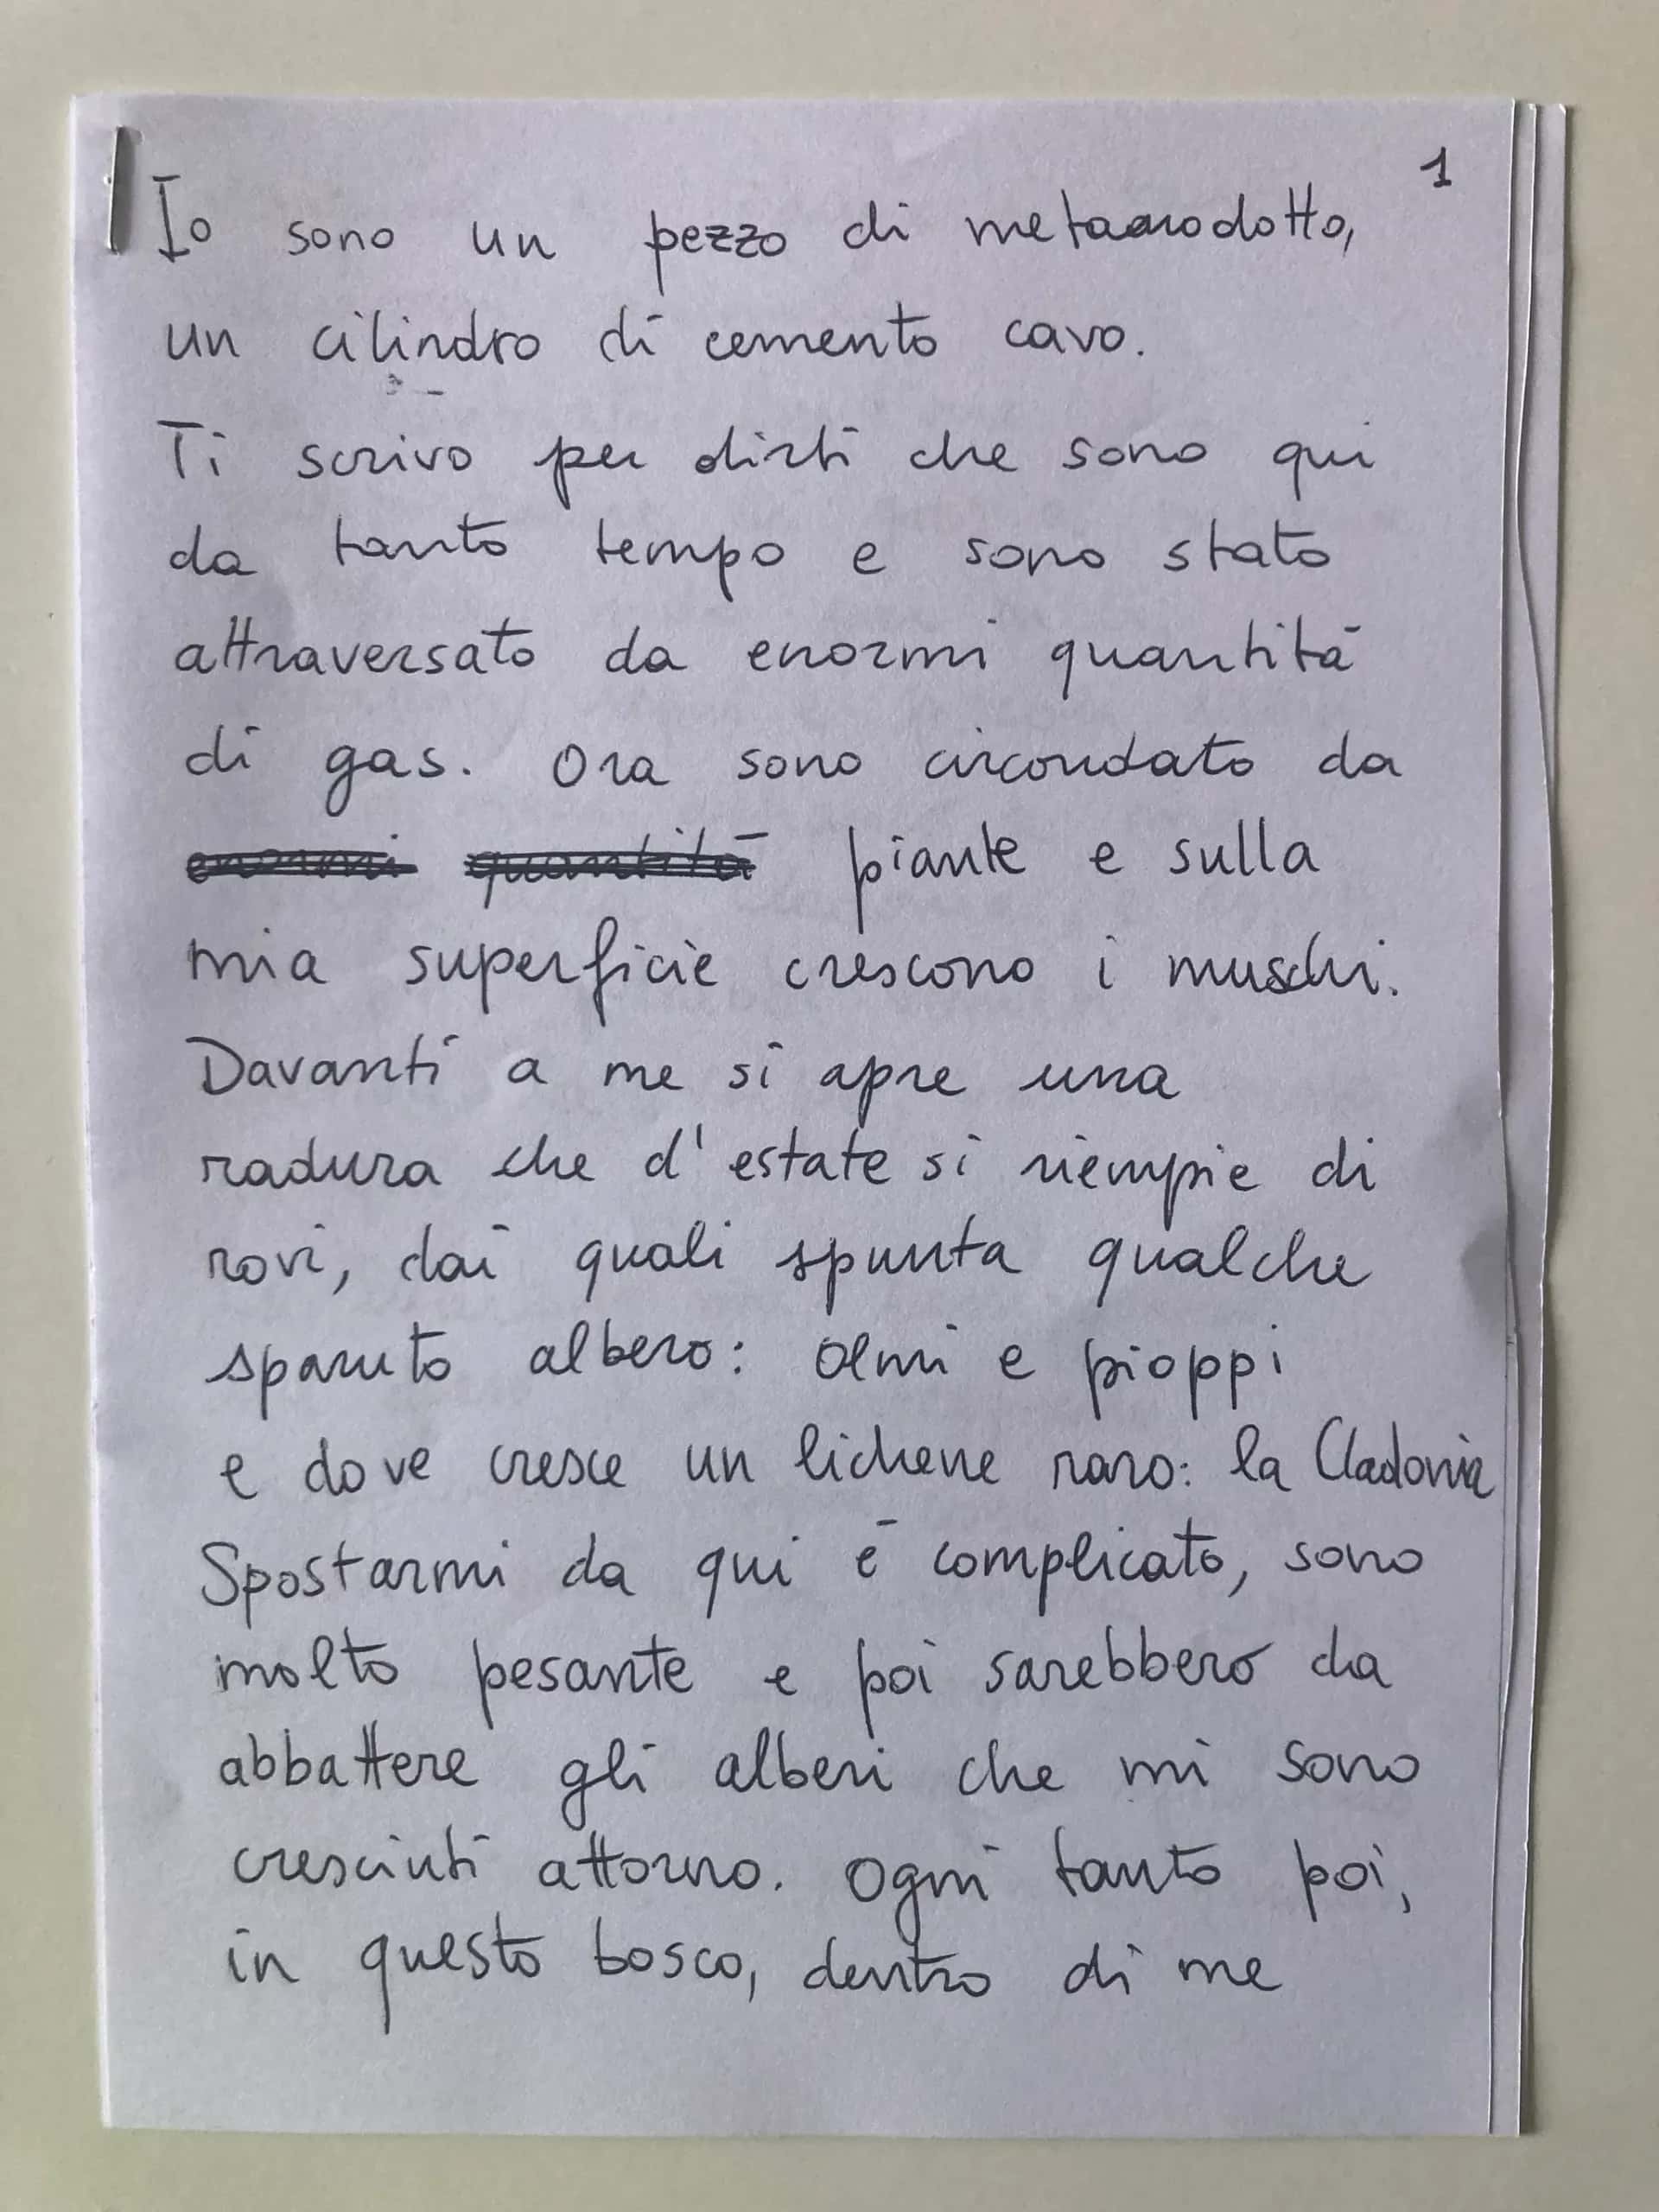 1
Io sono un pezzo di metanodotto,
un cilindro di cemento cavo.
Ti scrivo per dirti che sono qui
da tanto tempo e sono stato
attraversato da enormi quantità
di gas. Ora sono circondato da
enormi quantità piante e sulla
mia superficie crescono i muschi.
Davanti a me si apre una
radura che d'estate si riempie di
rovi, dai quali spunta qualche
sparuto albero: olmi e pioppi
e dove cresce un lichene raro: la Cladonia
Spostarmi da qui è complicato, sono
molto pesante e poi sarebbero da
abbattere gli alberi che mi sono
cresciuti attorno. Ogni tanto poi,
in questo bosco, dentro di me